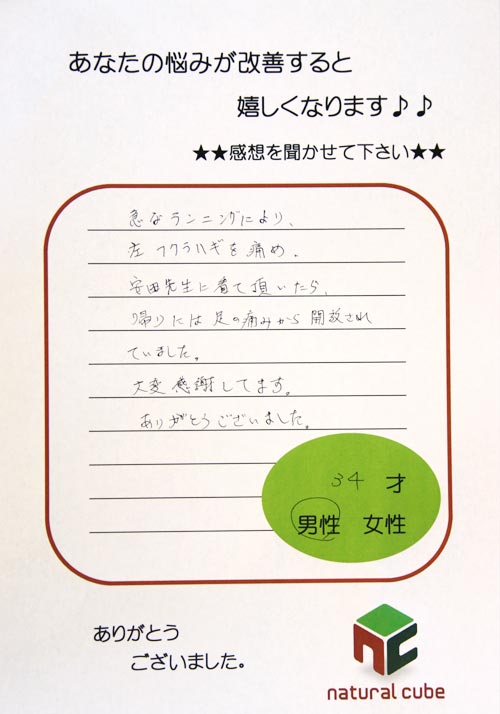 あなたの悩みが改善すると
嬉しくなります♪♪
★★感想を聞かせて下さい★★
急なランニングにより、
左フクラハギを痛め、
安田先生に着て頂いたら、
帰りには足の痛みから開放され
ていました。
大変感謝してます。
ありがとうございました。
34 才
男性 女性
ありがとう
ございました。
nc
natural cube